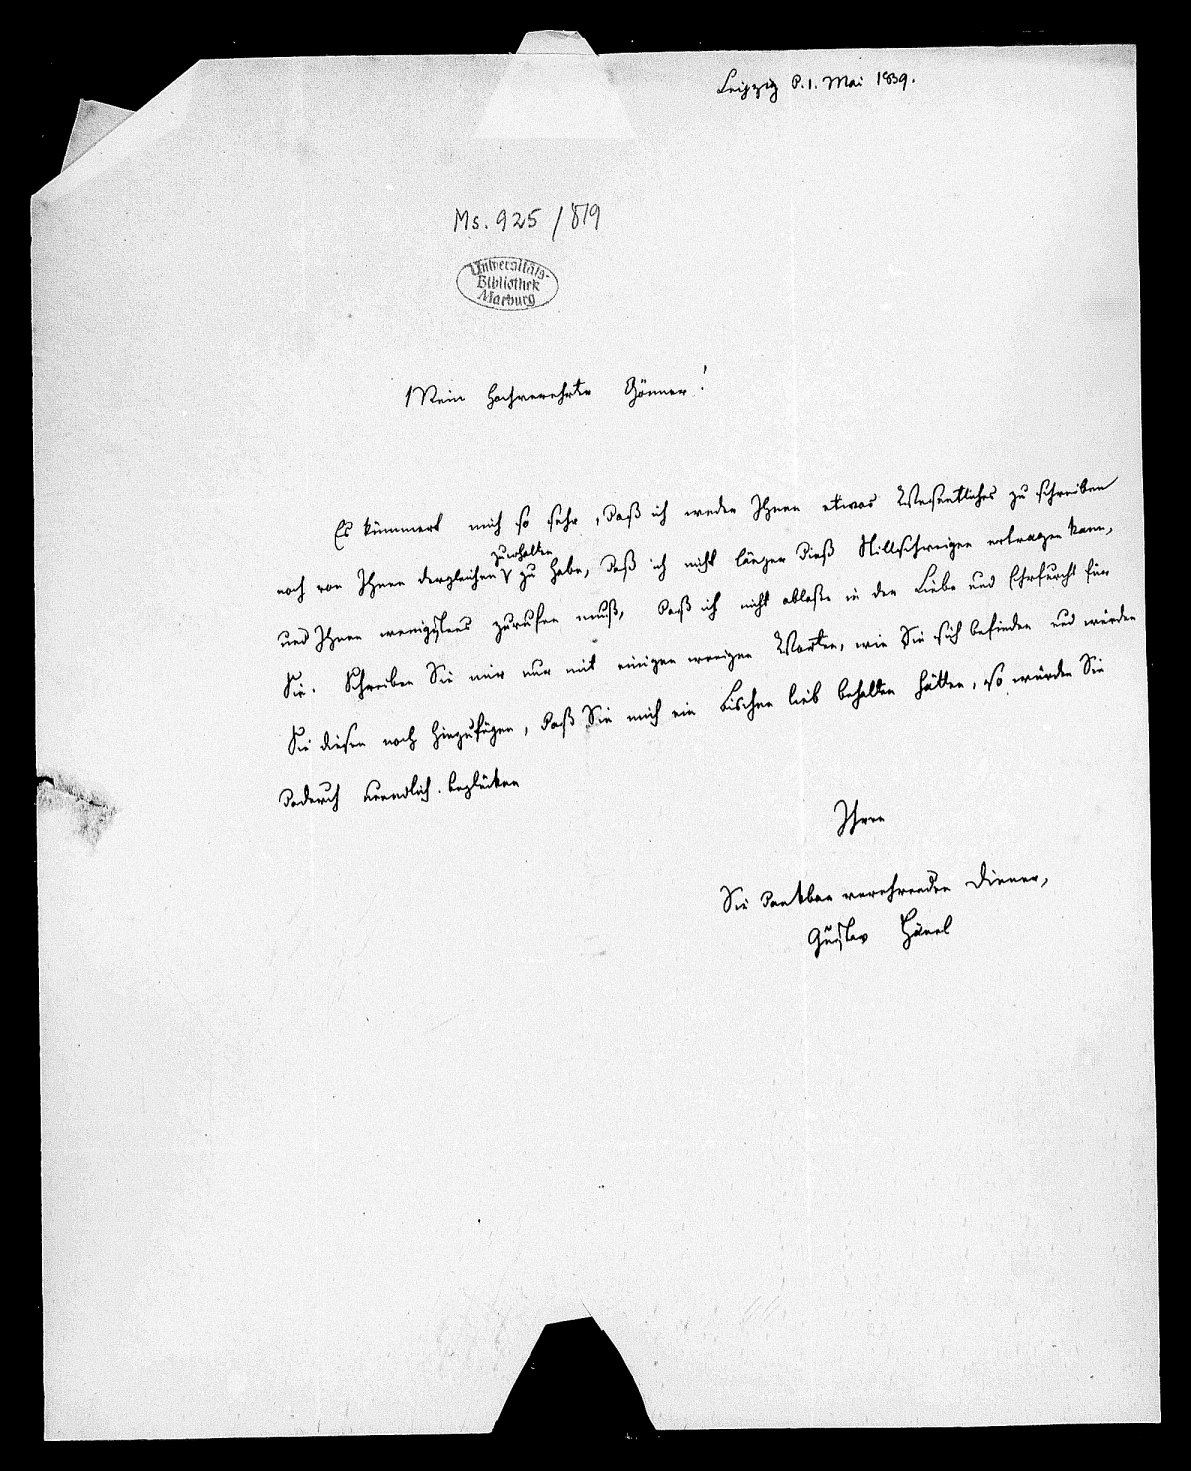 Leipzig d. 1. Mai 1839.
Ms. 925 / 819
Universitäts-
Bibliothek
Marburg
Mein hochverehrter Gönner!
Es kümmert mich so sehr, daß ich weder Ihnen etwas Wesentliches zu schreiben
zu erhalten
noch von Ihnen dergleichen zu habe, daß ich nicht länger dieß Stillschweigen ertragen kann,
und Ihnen wenigstens zurufen muß, daß ich nicht ablasse in der Liebe und Ehrfurcht für
Sie. Schreiben Sie mir nur mit einigen wenigen Worten, wie Sie sich befinden und würden
Sie diesen noch hinzufügen, daß Sie mich ein Bischen lieb behalten hätten, so würden Sie
dadurch unendlich beglücken
Ihren
Sie dankbar verehrenden Diener,
Gustav Hänel